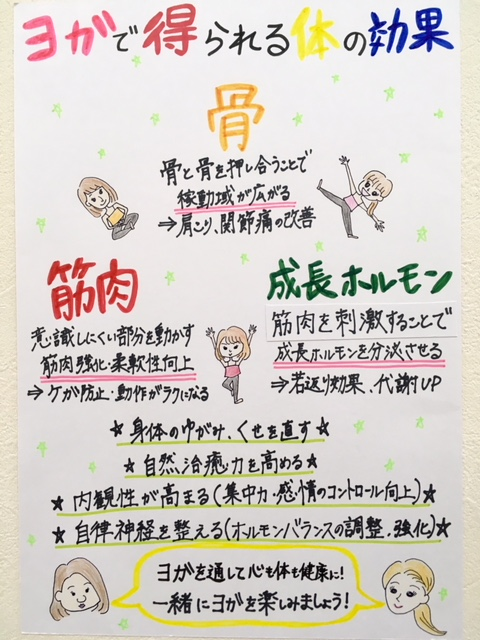 ヨガで得られる体の効果
骨
骨と骨を押し合うことで
稼動域が広がる
⇒肩こり、関節痛の改善
筋肉
意識しにくい部分を動かす
筋肉強化・柔軟性向上
⇒ケガ防止・動作がラクになる
成長ホルモン
筋肉を刺激することで
成長ホルモンを分泌させる
⇒若返り効果、代謝UP
★身体のゆがみ、くせを直す★
★自然治癒力を高める★
★内観性が高まる(集中力・感情のコントロール向上)★
★自律神経を整える(ホルモンバランスの調整、強化)★
ヨガを通して心も体も健康に!
一緒にヨガを楽しみましょう!